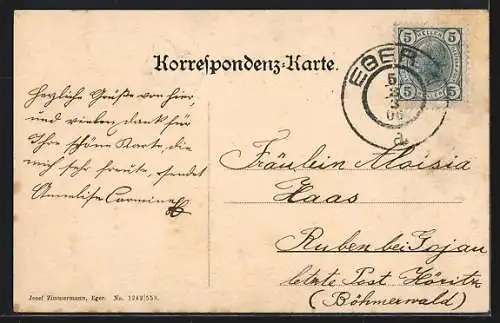 Korrespondenz-Karte.
5 HELLER 5
5 5
EGER
5
3
06
a
Herzliche Grüße von hier,
und vielen dank für
Ihre schöne Karte, die
mich sehr freute, sendet
Annelise
Fräulein Aloisia
Haas
Ruben bei Gojau
letzte Post Höritz
(Böhmerwald)
Josef Zimmermann, Eger. No. 1242